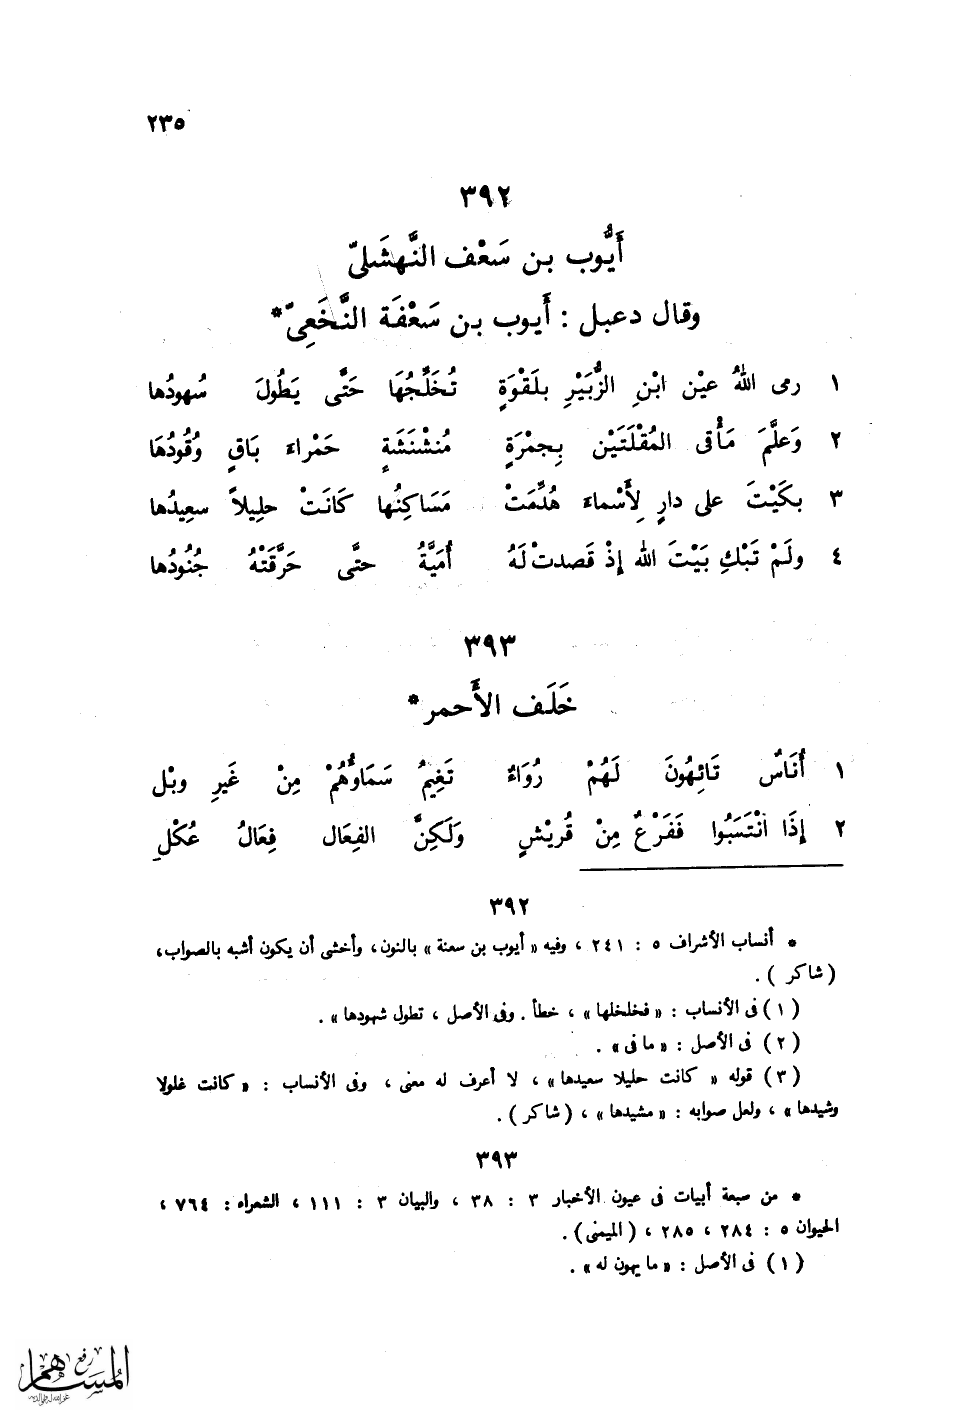 ٢٣٥
٣٩٢
أَيُّوب بن سَعْف النَّهشَلىّ
وقال دعبل : أَيوب بن سَعْفَة النَّخَعِىّ*
١ رمى اللهُ عيْن ابْنِ الزُّبَيْرِ بلَقْوَةٍ تُخَلِّجُهَا حَتَّى يَطُولَ سُهودُها
٢ وَعلَّمَ مَأْقى المُقْلَتَيْن بِجمْرَةٍ مُنشْنَشَةٍ حَمْراءَ بَاقٍ وقُودُهَا
٣ بكَيْتَ على دارٍ لِأَسْماءَ هُدِّمَتْ مَسَاكِنُها كَانَتْ حلِيلاً سعِيدُها
٤ ولَمْ تَبْكِ بَيْتَ الله إذْ قَصدتْ لَهُ أُمَيَّةُ حتَّى حَرَّقَتْهُ جُنُودُها
٣٩٣
خَلَف الأَحمر*
١ أُنَاسٌ تَائِهُونَ لَهُمْ رُوَاءٌ تَغِيمُ سَمَاوُهُمْ مِنْ غَيرِ وبْل
٢ إِذَا انْتَسَبُوا فَفَرْعٌ مِنْ قُريْشٍ وَلَكِنَّ الفِعَال فِعَالُ عُكْلِ
٣٩٢
* أنساب الأشراف ٥ : ٢٤١ ، وفيه « أيوب بن سعنة » بالنون، وأخشى أن يكون أشبه بالصواب،
( شاكر ) .
( ١ ) فى الأنساب : « فخلخلها » ، خطأ . وفى الأصل ، تطول شهودها » .
( ٢ ) فى الأصل : « ما فى » .
( ٣ ) قوله « كانت حليلا سعيدها » ، لا أعرف له معنى ، وفى الأنساب : « كانت غلولا
وشيدها » ، ولعل صوابه : « مشيدها » ، ( شاكر ) .
٣٩٣
* من سبعة أبيات فى عيون الأخبار ٣ : ٣٨ ، والبيان ٣ : ١١١ ، الشعراء : ٧٦٤ ،
الحيوان ٥ : ٢٨٤ ، ٢٨٥ ، ( الميمنى ) .
( ١ ) فى الأصل : « ما يهون له » .
رفع
المساهم